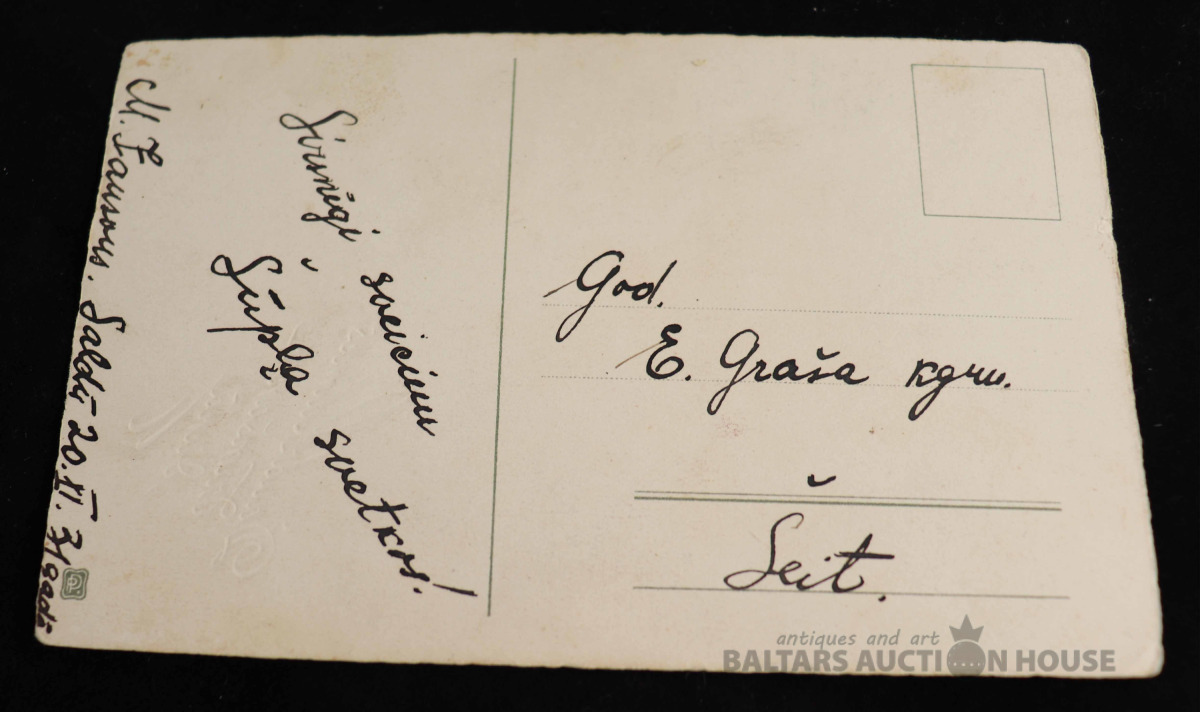 Sirsnīgi sveicieni
Šūpļa svetkos!
M. Jansons. Saldū 20.III. 31 gadā
God.
E. Graša kgm.
Šeit.
antiques and art
BALTARS AUCTION HOUSE